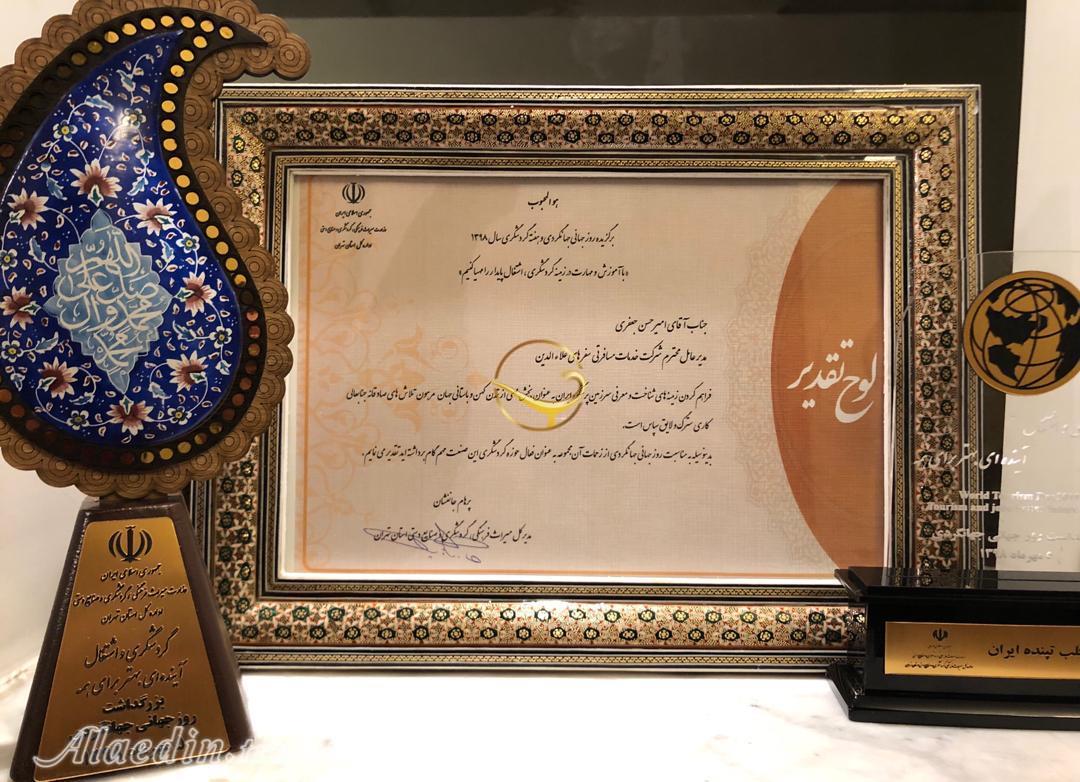 اللهم
صل علی
محمد و آل
محمد
جمهوری اسلامی ایران
وزارت میراث فرهنگی، گردشگری و صنایع دستی
اداره کل استان تهران
گردشگری و اشتغال
آینده‌ای بهتر برای همه
بزرگداشت
روز جهانی
Alaedin
جمهوری اسلامی ایران
وزارت میراث فرهنگی، گردشگری و صنایع دستی
اداره کل استان تهران
هو المحبوب
برگزیده روز جهانی جهانگردی و هفته گردشگری سال ۱۳۹۸
«با آموزش و مهارت در زمینه گردشگری، اشتغال پایدار را مهیا کنیم»
جناب آقای امیرحسن جعفری
مدیرعامل محترم شرکت خدمات مسافرتی سفرهای علاءالدین
فراهم کردن زمینه‌های شناخت و معرفی سرزمین ایران به عنوان از تمدن کهن و باستانی جهان مرهون تلاش های صادقانه جنابعالی
کاری سترگ و لایق سپاس است.
بدینوسیله به مناسبت روز جهانی جهانگردی از زحمات آن مجموعه به عنوان فعال حوزه گردشگری این صنعت مهم گام برداشته اید تقدیر می نمایم.
پرهام جانفشان
مدیرکل میراث فرهنگی، گردشگری و صنایع دستی استان تهران
لوح تقدیر
آینده ای بهتر برای همه
World Tourism
Tourism and
روز جهانی جهانگردی
۵ مهرماه ۱۳۹۸
تپنده ایران